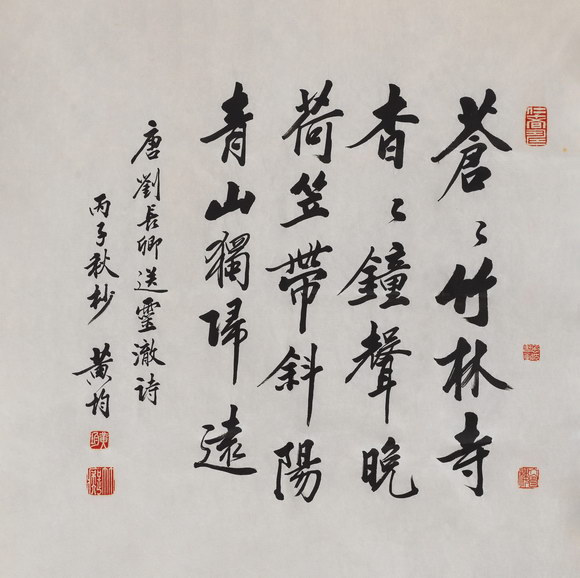 蒼〻竹林寺
杳〻鐘聲晚
荷笠帶斜陽
青山獨歸遠
唐劉長卿送靈澈詩
丙子秋杪 黃均